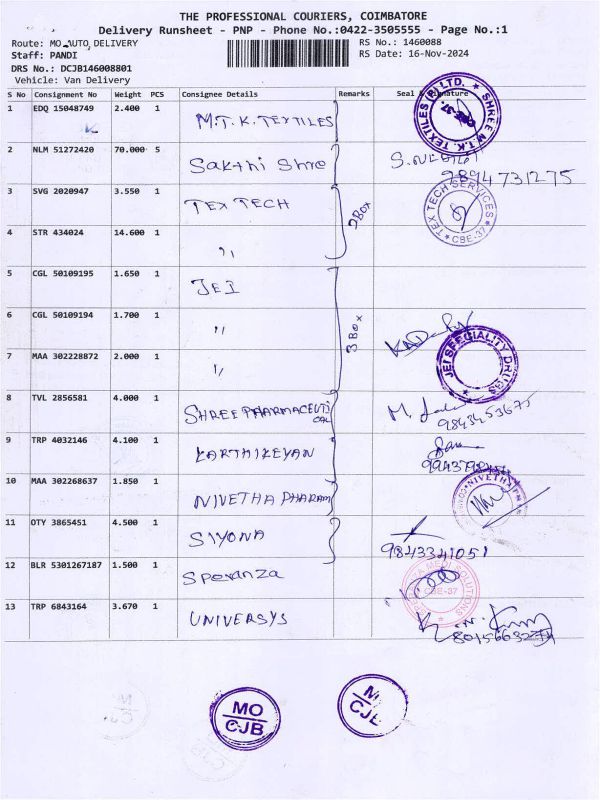 THE PROFESSIONAL COURIERS, COIMBATORE
Delivery Runsheet - PNP - Phone No.:0422-3505555 - Page No.:1
Route: MO_AUTO_DELIVERY
RS No.: 1460088
Staff: PANDI
RS Date: 16-Nov-2024
DRS No.: DCJB146008801
Vehicle: Van Delivery
S No Consignment No Weight PCS Consignee Details Remarks Seal & Signature
1 EDQ 15048749 2.400 1 M.T.K.TEXTILES
SHREE M.T.K. TEXTILES (P) LTD. CBE-37.
2 NLM 51272420 70.000 5 Sakthi Shree
7894731275
3 SVG 2020947 3.550 1 TEX TECH 2Box
TEX TECH SERVICES CBE-37
4 STR 434024 14.600 1 ,,
5 CGL 50109195 1.650 1 JEI
6 CGL 50109194 1.700 1 ,, 3Box
7 MAA 302228872 2.000 1 ,,
JEI SPECIALITY DRUGS
8 TVL 2856581 4.000 1 SHREE PHARMACEUTICAL
9843453675
9 TRP 4032146 4.100 1 KARTHIKEYAN
10 MAA 302268637 1.850 1 NIVETHA PHARAM
NIVETHA
11 OTY 3865451 4.500 1 SIYONA
9843341051
12 BLR 5301267187 1.500 1 Speranza
MEDI SOLUTIONS CBE-37
13 TRP 6843164 3.670 1 UNIVERSYS
MO
CJB
MO
CJB